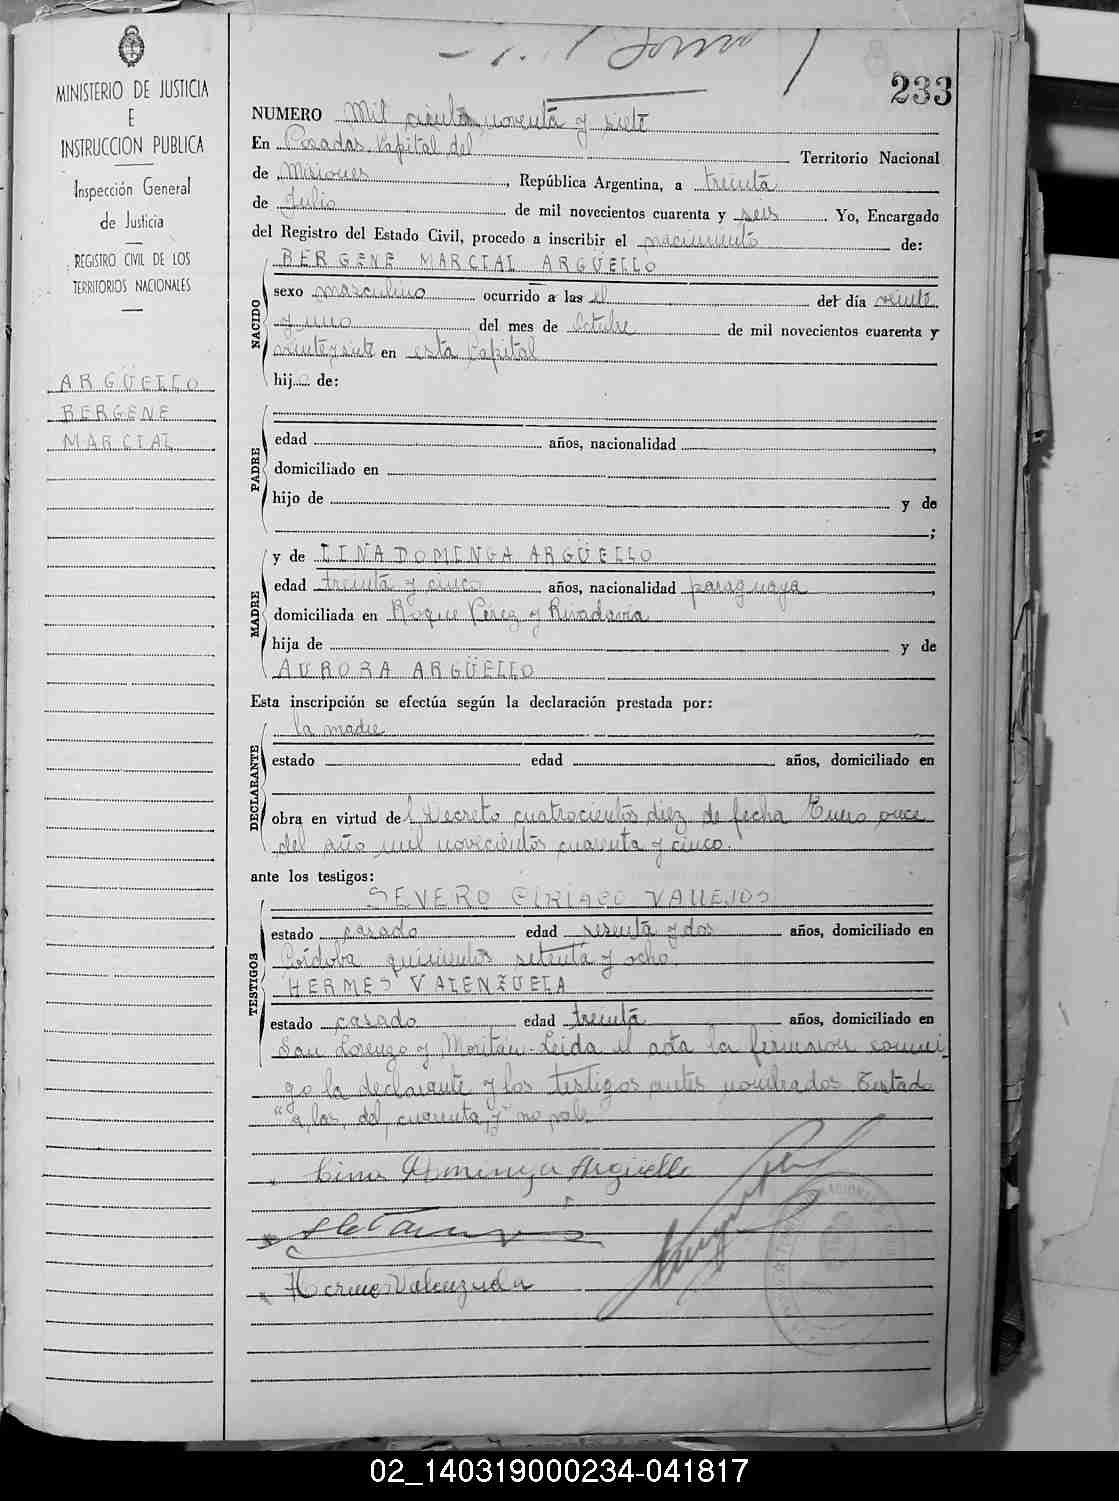 233
MINISTERIO DE JUSTICIA
E
INSTRUCCION PUBLICA
Inspección General
de Justicia
REGISTRO CIVIL DE LOS
TERRITORIOS NACIONALES
ARGÜELLO
BERGENE
MARCIAL
NUMERO Mil ciento noventa y siete
En Posadas, Capital del Territorio Nacional
de Misiones, República Argentina, a treinta
de Julio de mil novecientos cuarenta y seis. Yo, Encargado
del Registro del Estado Civil, procedo a inscribir el nacimiento de:
BERGENE MARCIAL ARGÜELLO
NACIDO
sexo masculino ocurrido a las el del día veinte
y uno del mes de Octubre de mil novecientos cuarenta y
veintey siete en esta Capital
hijo de:
PADRE
edad años, nacionalidad ,
domiciliado en
hijo de y de
;
MADRE
y de LINA DOMINGA ARGÜELLO
edad treinta y cinco años, nacionalidad paraguaya,
domiciliada en Roque Perez y Rivadavia
hija de y de
AURORA ARGÜELLO
Esta inscripción se efectúa según la declaración prestada por:
DECLARANTE
la madre
estado edad años, domiciliado en
obra en virtud del Decreto cuatrocientos diez de fecha Enero once
del año mil novecientos cuarenta y cinco.
ante los testigos:
TESTIGOS
SEVERO CIRIACO VALLEJOS
estado casado edad sesenta y dos años, domiciliado en
Córdoba quinientos setenta y ocho.
HERMES VALENZUELA
estado casado edad treinta años, domiciliado en
San Lorenzo y Moritán-Leida el acta la firmaron conmi-
go la declarante y los testigos antes nombrados Testado
"a las, del, cuarenta, y" no vale.
Lina Dominga Argüello
Hermes Valenzuela
02_140319000234-041817